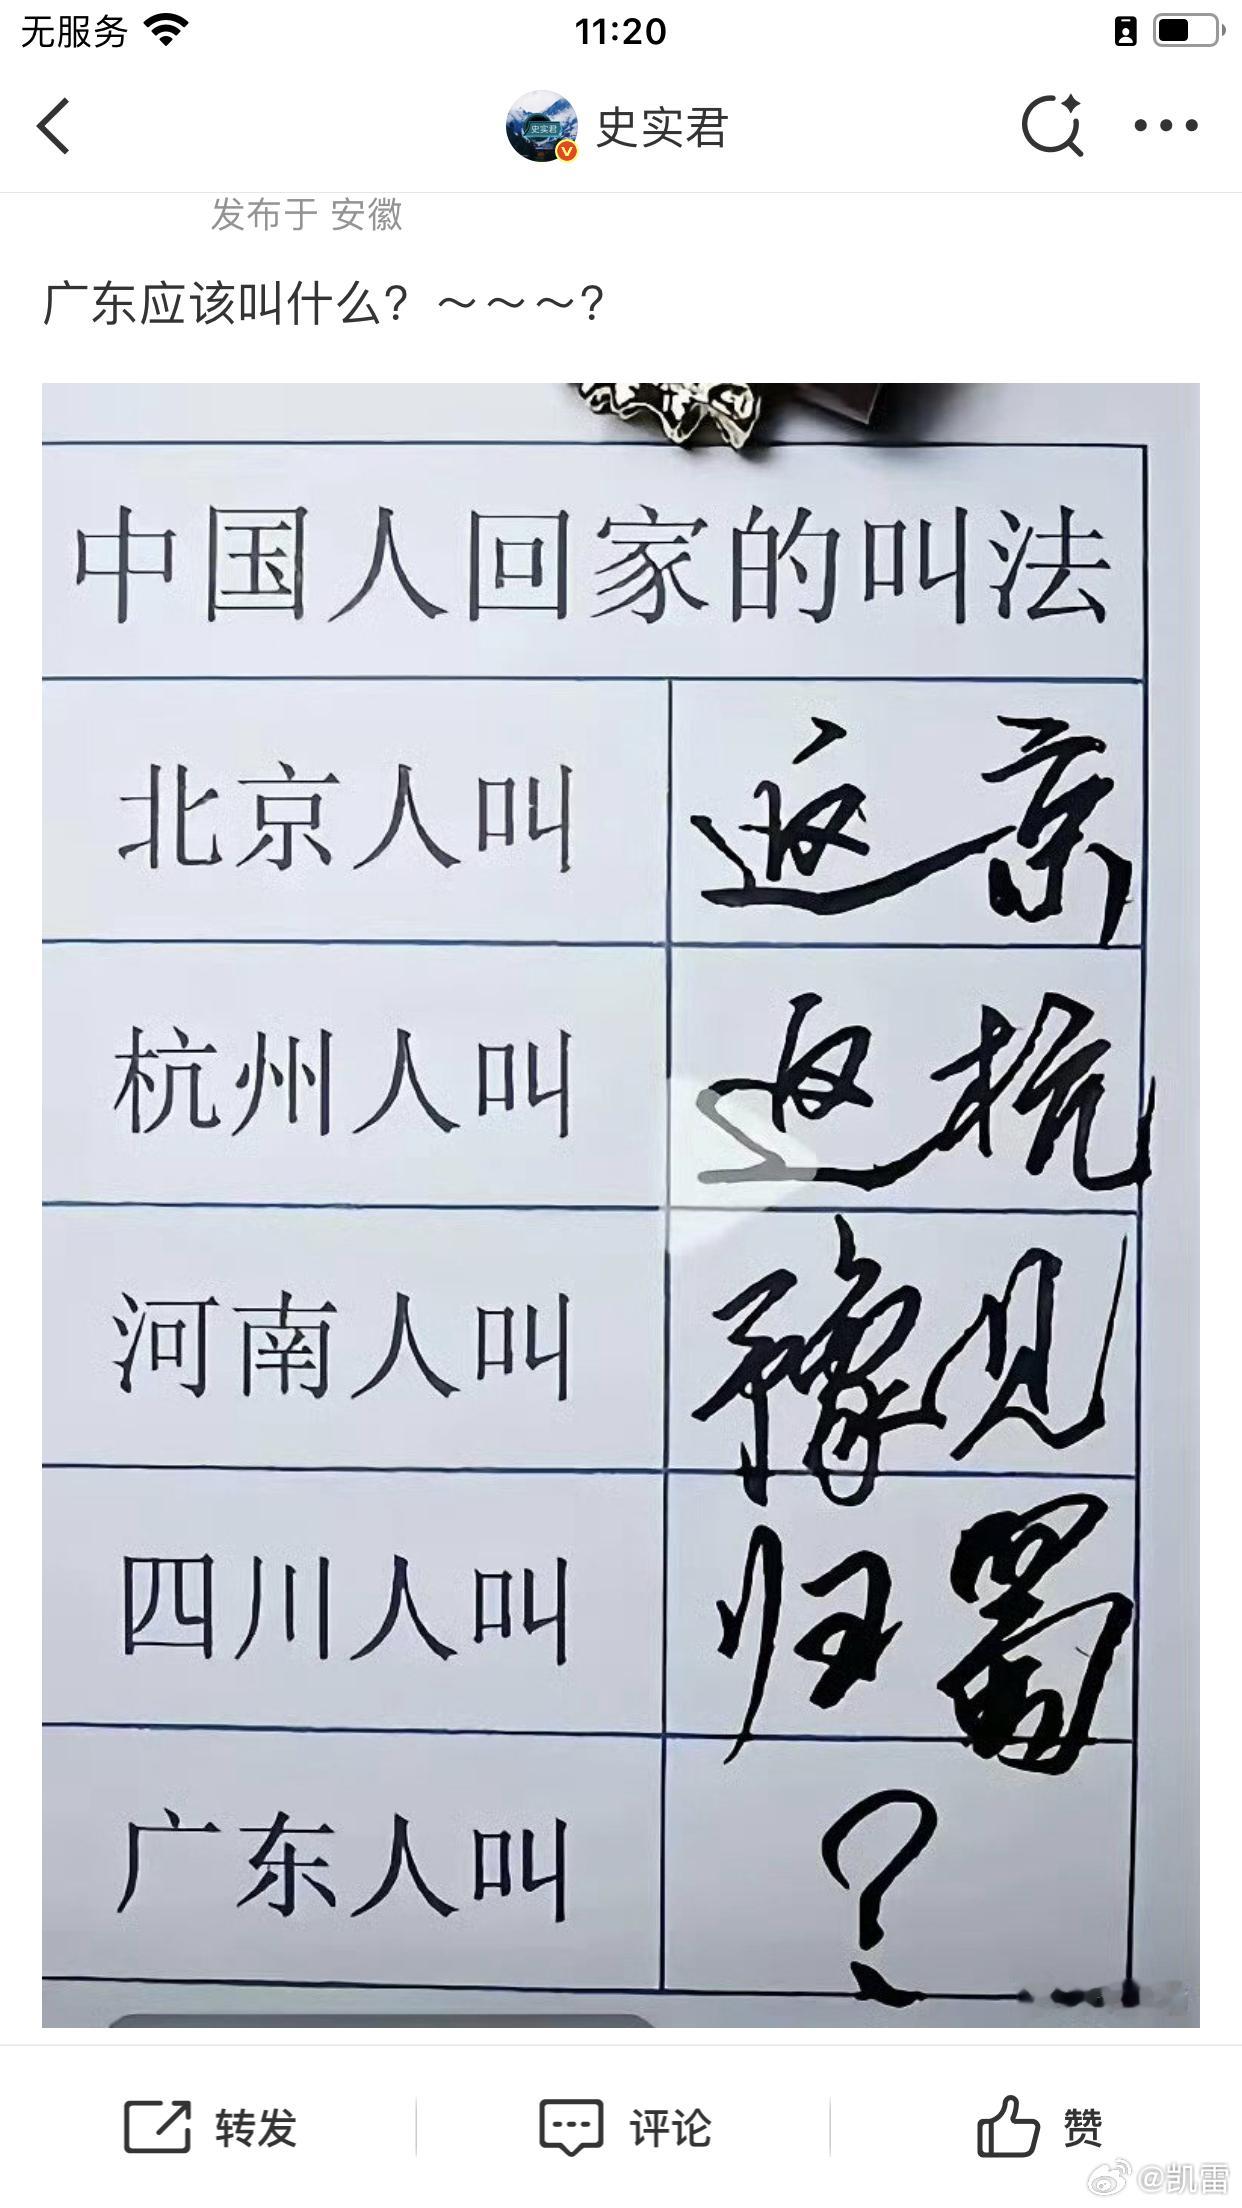 无服务 11:20
史实君
史实君
发布于 安徽
广东应该叫什么？～～～？
中国人回家的叫法
北京人叫 返京
杭州人叫 返杭
河南人叫 豫见
四川人叫 归蜀
广东人叫 ?
转发 评论 赞
@凯雷